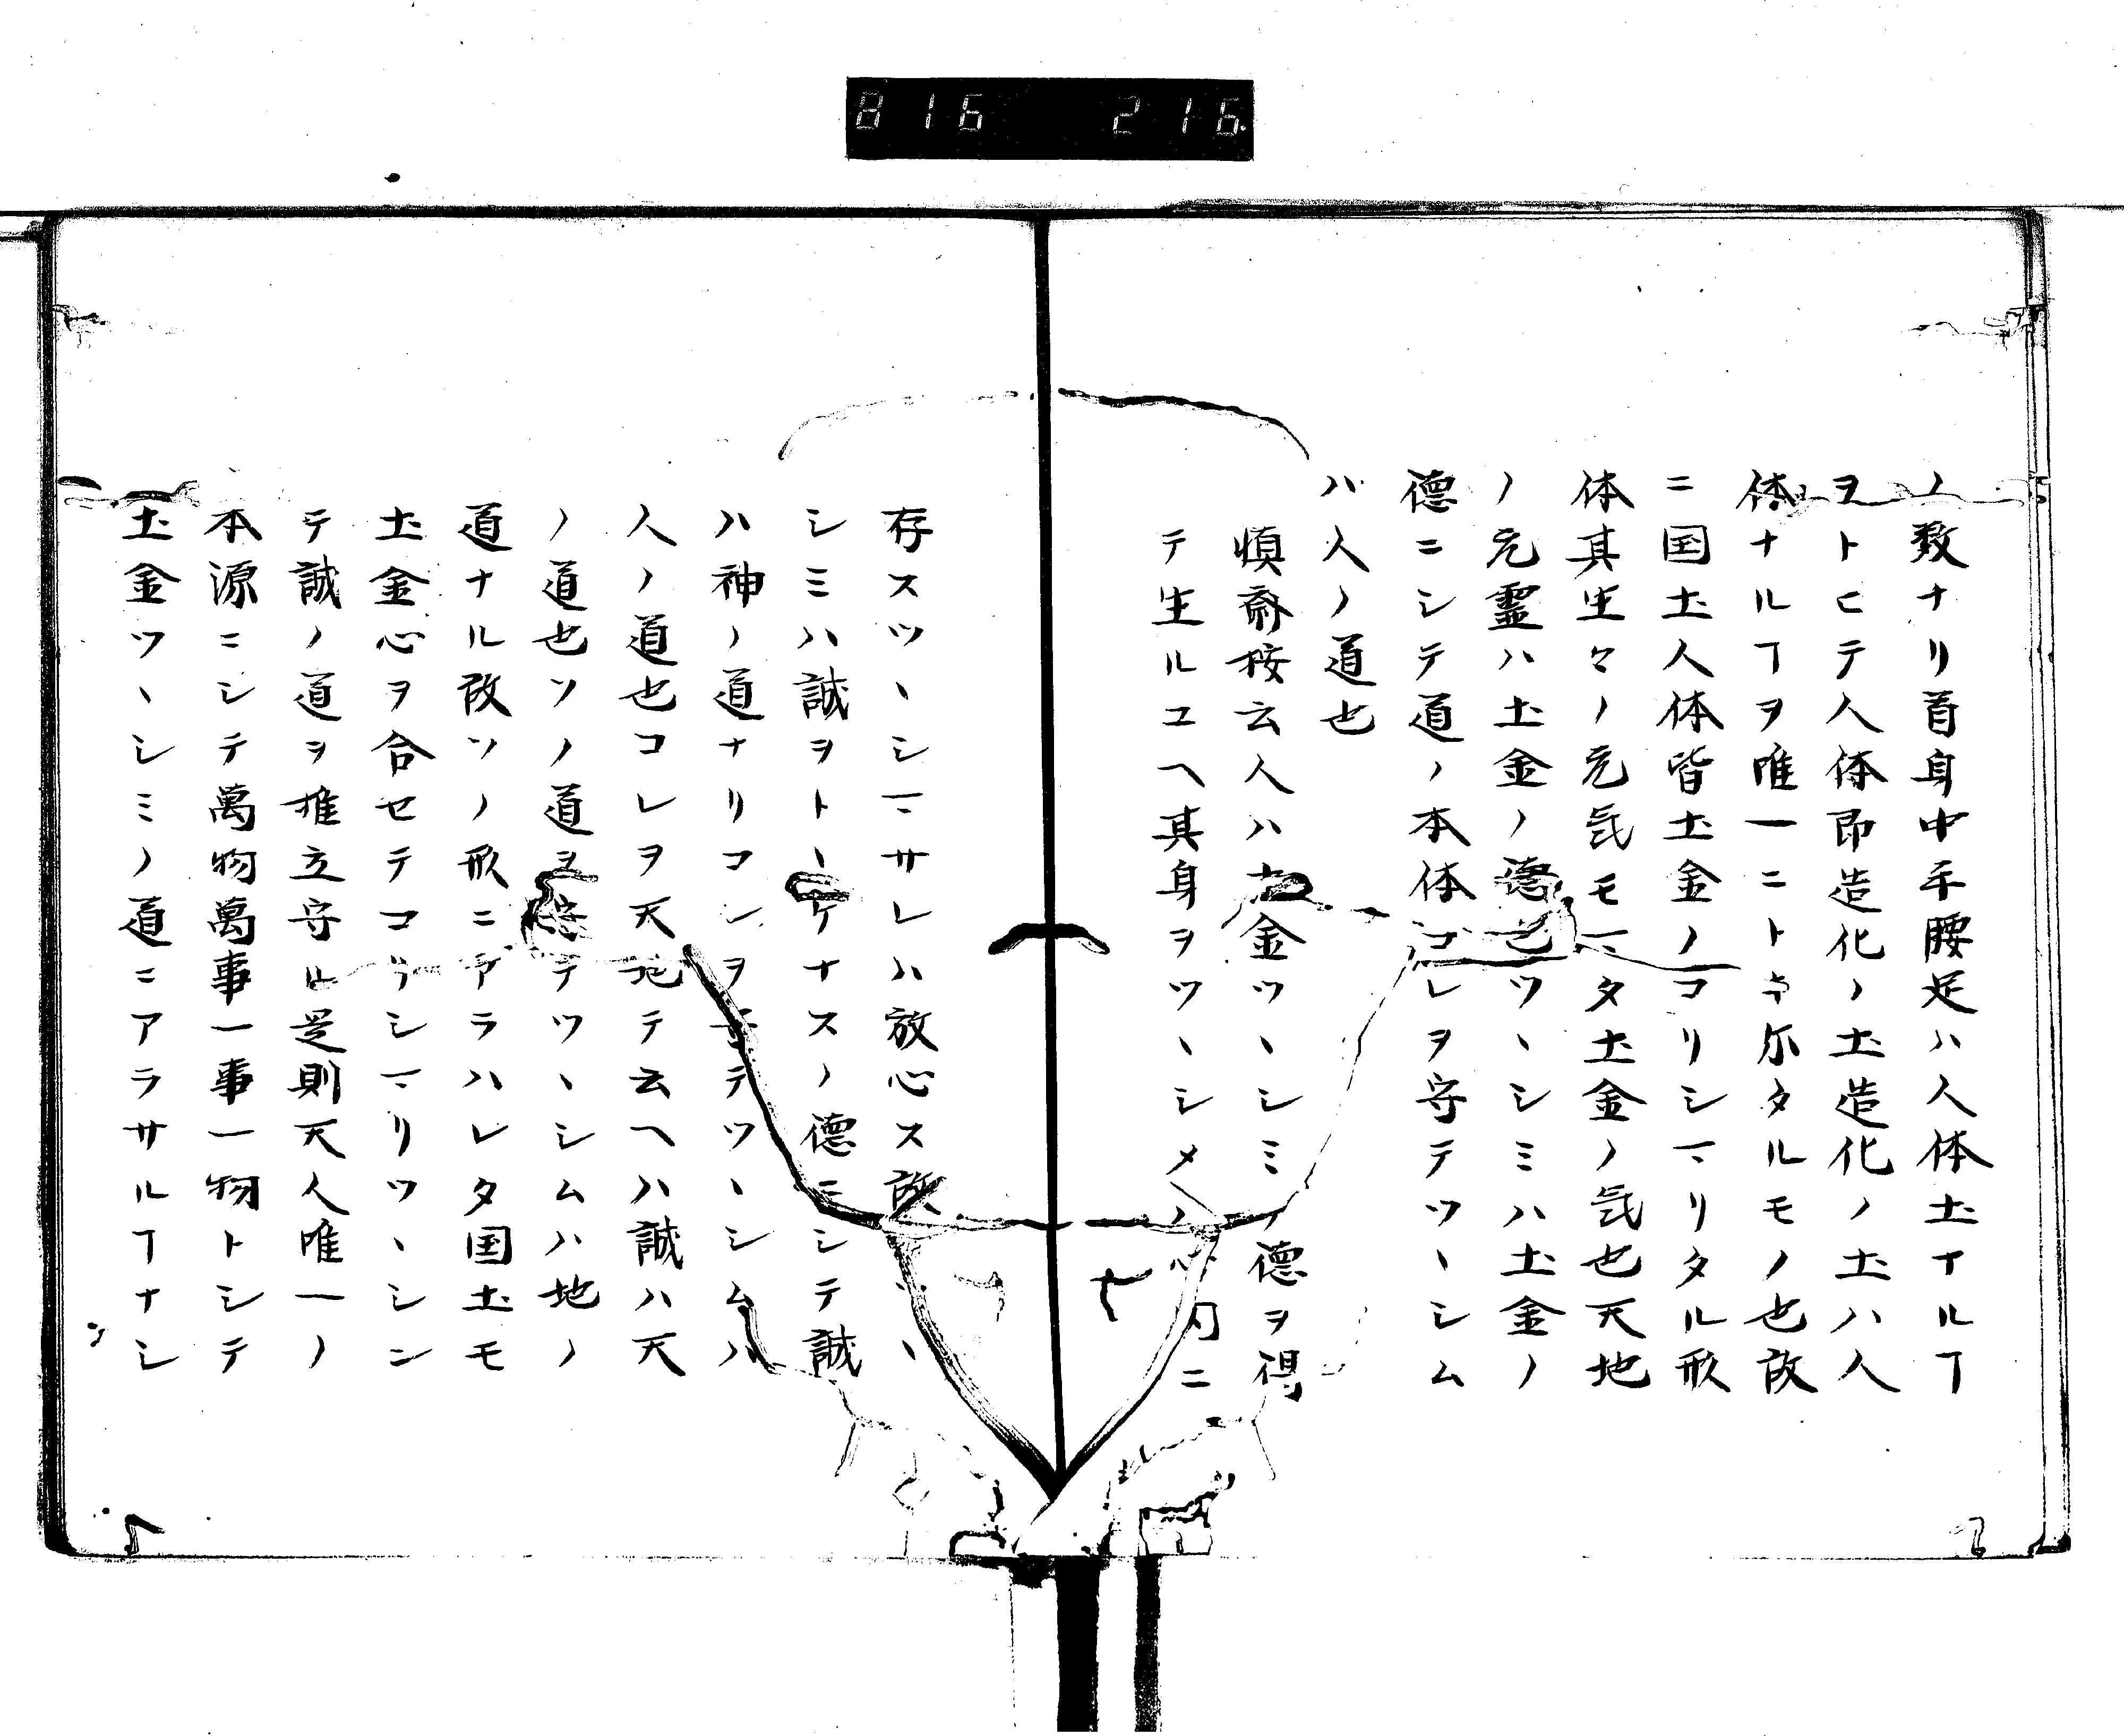 816 216
ノ数ナリ首身中手腰足ハ人体土アルヿ
ヲトヒテ人体即造化ノ土造化ノ土ハ人
体ナルヿヲ唯一ニトキ尓タルモノ也故
ニ国土人体皆土金ノコリシマリタル形
体其生々ノ元気モマタ土金ノ気也天地
ノ元霊ハ土金ノ徳也ツヽシミハ土金ノ
徳ニシテ道ノ本体コレヲ守テツヽシム
ハ人ノ道也
慎斎按云人ハ土金ツヽシミノ徳ヲ得
テ生ルユヘ其身ヲツヽシメハ心内ニ
存スツヽシマサレハ放心ス故ツヽ
シミハ誠ヲトヽケナスノ徳ニシテ誠
ハ神ノ道ナリコレヲ守テツヽシムハ
人ノ道也コレヲ天地テ云ヘハ誠ハ天
ノ道也ソノ道ヲ守テツヽシムハ地ノ
道ナル故ソノ形ニアラハレタ国土モ
土金心ヲ合セテコリシマリツヽシン
テ誠ノ道ヲ推立守ル是則天人唯一ノ
本源ニシテ萬物萬事一事一物トシテ
土金ツヽシミノ道ニアラサルヿナシ